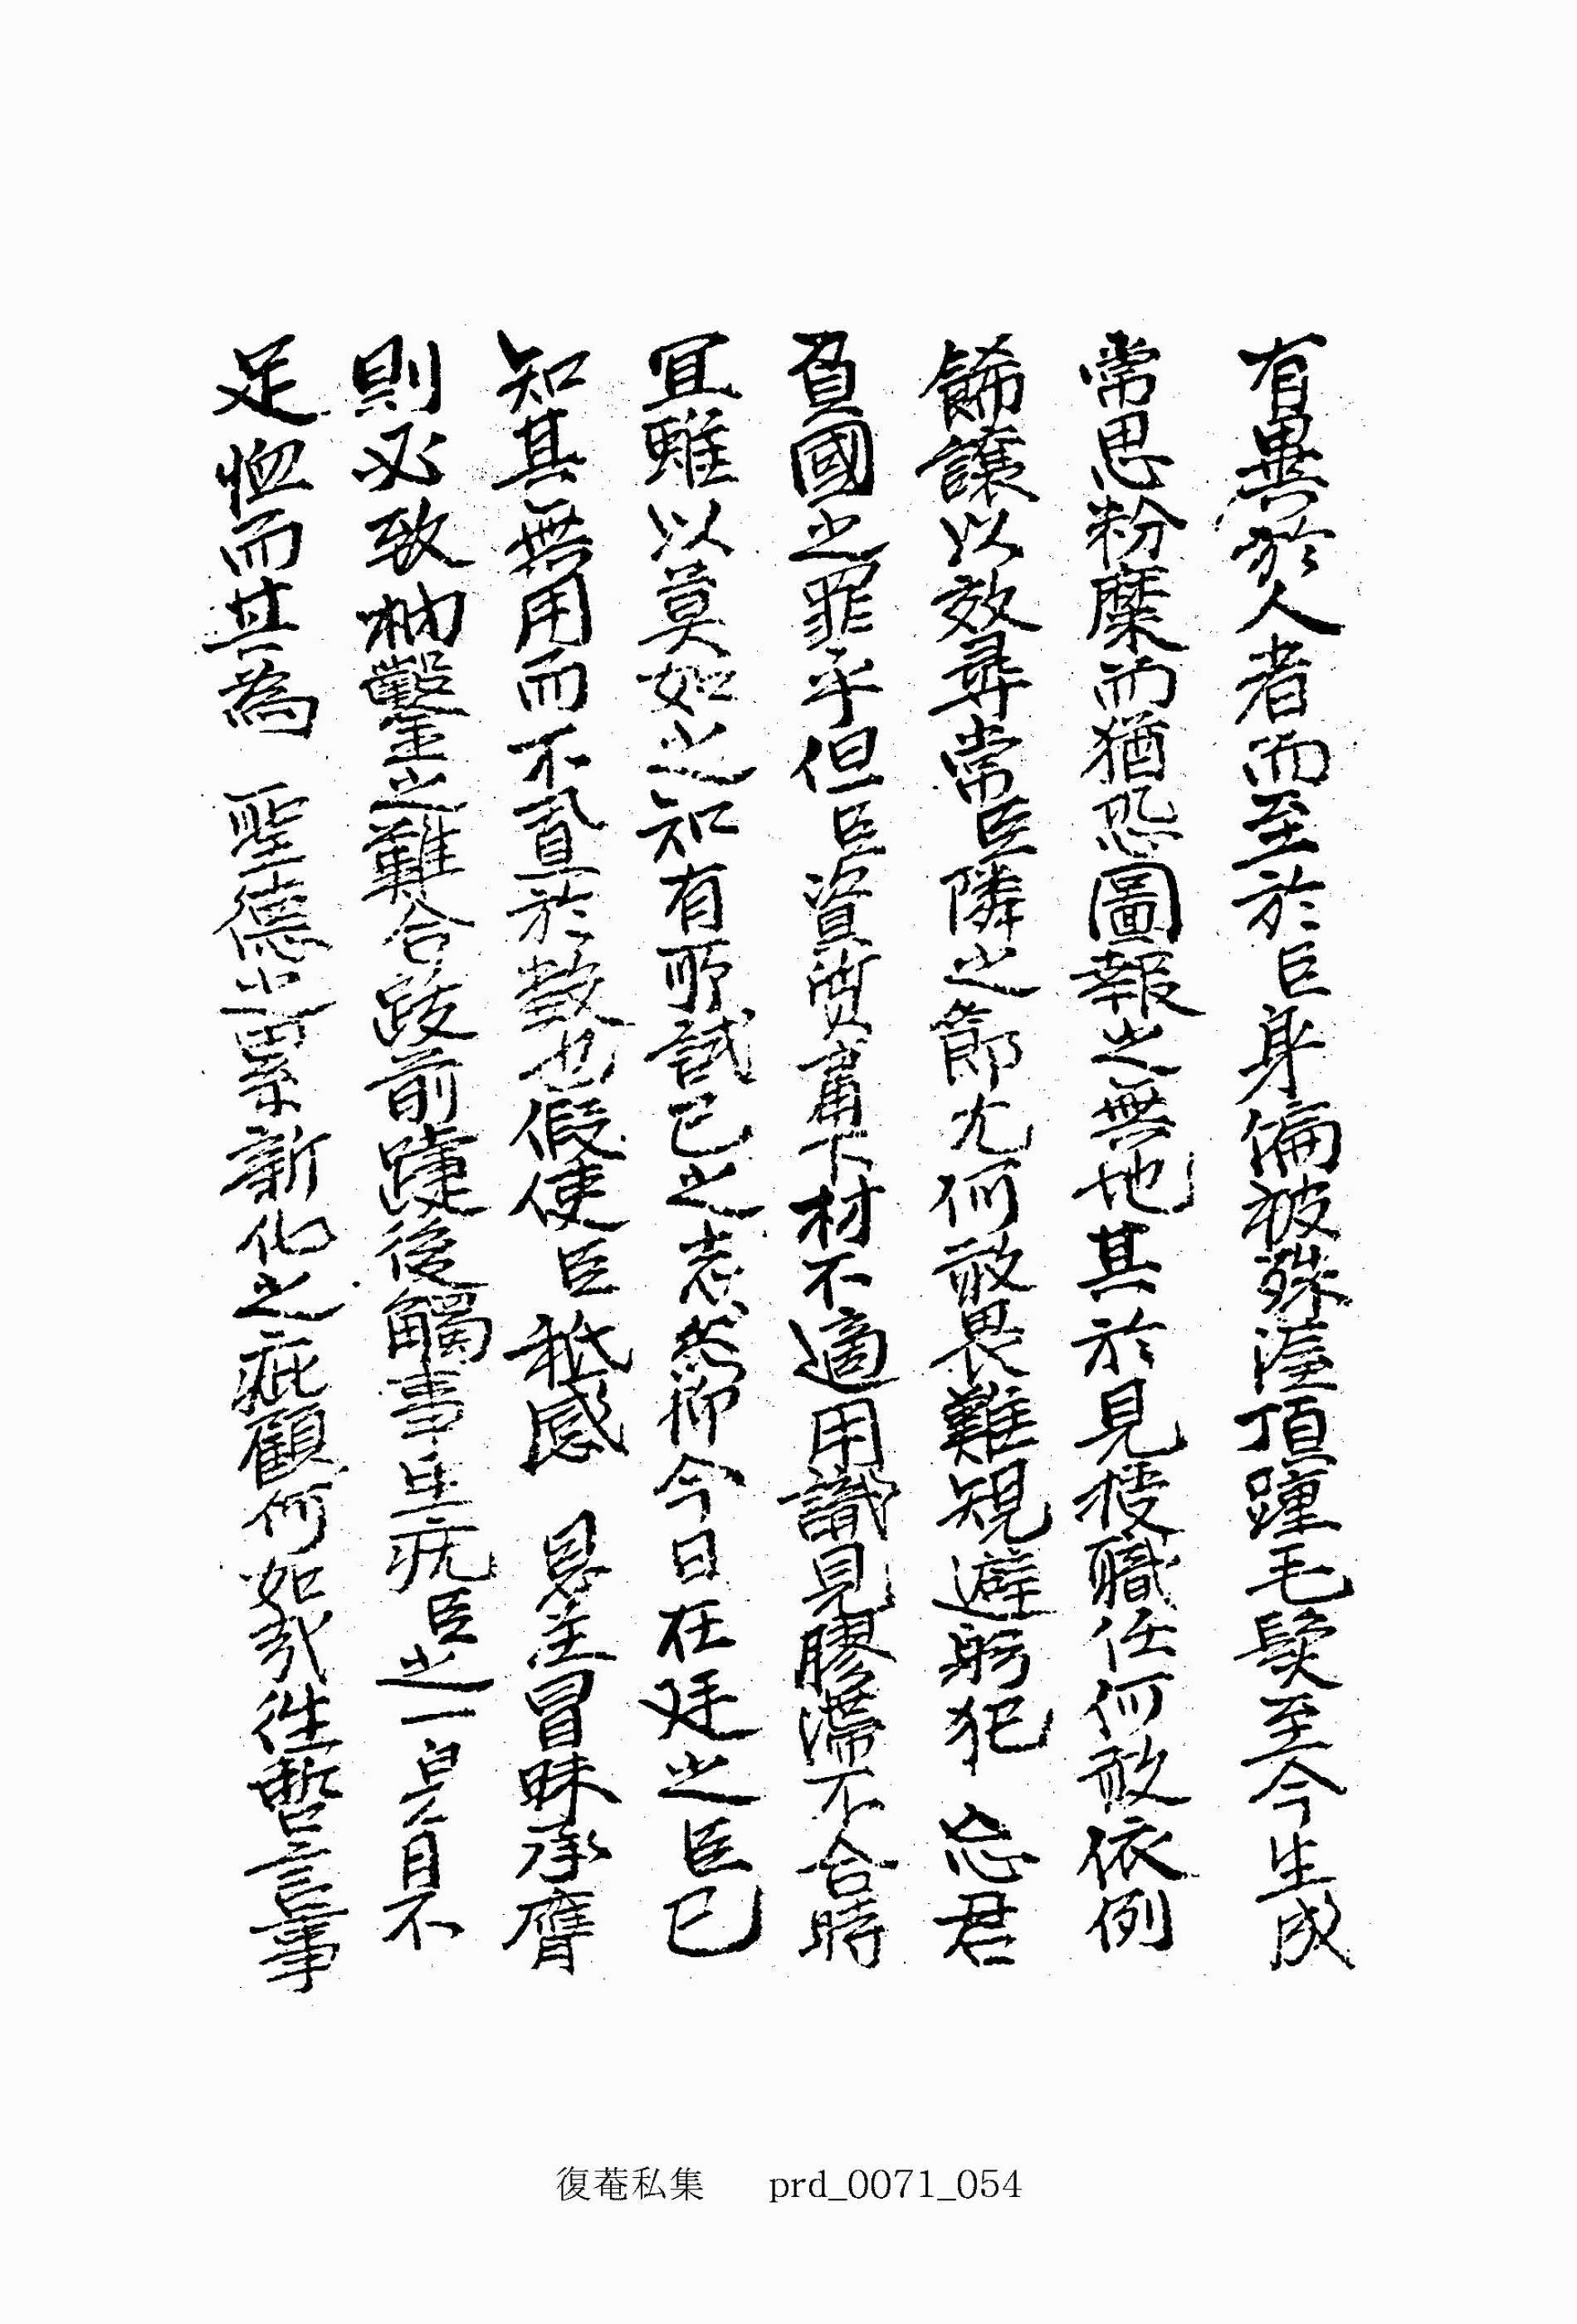 有異於人者而至於臣身偏被殊渥頂踵毛髮至今生成
常思粉糜而猶恐圖報之無地其於見授職任何敢依例
餙讓以效尋常臣隣之節尤何敢畏難規避躬犯 忘君
負國之罪乎但臣資質庸下材不適用識見膠滯不合時
宜雖以莫如之知有所試已之志然抑今日在廷之臣已
知其無用而不置於數也假使臣秪感 恩差冒昧承膺
則必致枘鑿之難合跋前躓後觸事生疣臣之一身自不
足恤而其為 聖德之累新化之疵顧何如哉徃暫言事
復菴私集 prd_0071_054